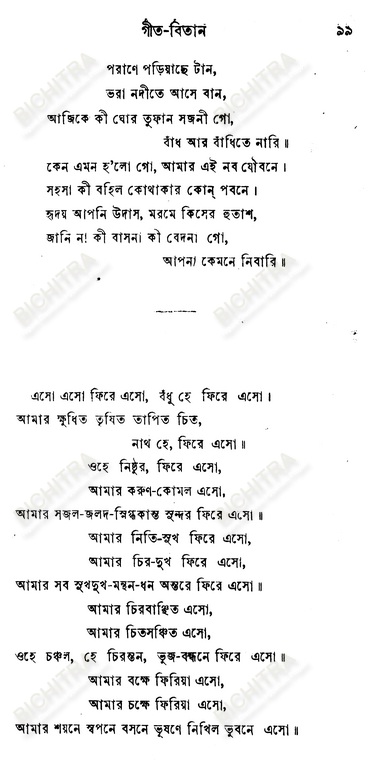 গীত-বিতান ৯৯
পরাণে পড়িয়াছে টান,
ভরা নদীতে আসে বান,
আজিকে কী ঘোর তুফান সজনী গো,
বাঁধ আর বাঁধিতে নারি ॥
কেন এমন হ'লো গো, আমার এই নব যৌবনে।
সহসা কী বহিল কোথাকার কোন্ পবনে।
হৃদয় আপনি উদাস, মরমে কিসের হুতাশ,
জানি না কী বাসনা কী বেদনা গো,
আপনা কেমনে নিবারি ॥
এসো এসো ফিরে এসো, বঁধু হে ফিরে এসো।
আমার ক্ষুধিত তৃষিত তাপিত চিত,
নাথ হে, ফিরে এসো ॥
ওহে নিষ্ঠুর, ফিরে এসো,
আমার করুণ-কোমল এসো,
আমার সজল-জলদ-স্নিগ্ধকান্ত সুন্দর ফিরে এসো ॥
আমার নিতি-সুখ ফিরে এসো,
আমার চির-দুখ ফিরে এসো,
আমার সব সুখদুখ-মন্থন-ধন অন্তরে ফিরে এসো ॥
আমার চিরবাঞ্ছিত এসো,
আমার চিতসঞ্চিত এসো,
ওহে চঞ্চল, হে চিরন্তন, ভুজ-বন্ধনে ফিরে এসো ॥
আমার বক্ষে ফিরিয়া এসো,
আমার চক্ষে ফিরিয়া এসো,
আমার শয়নে স্বপনে বসনে ভূষণে নিখিল ভুবনে এসো ॥
BICHITRA
BICHITRA
BICHITRA
BICHITRA
BICHITRA
BICHITRA